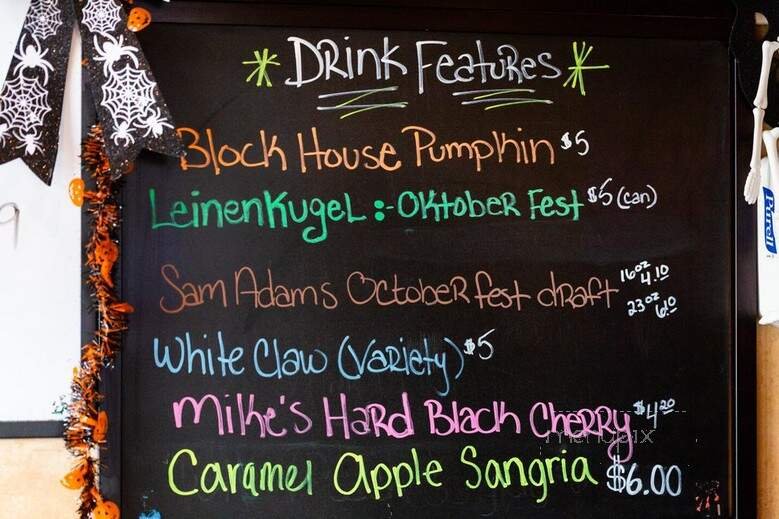 Drink Features
Block House Pumpkin $5
Leinenkugel :- Oktober Fest $5 (can)
Sam Adams October fest draft 16oz 4.10
23oz 6.10
White Claw (Variety) $5
Mike's Hard Black Cherry $4.20
Caramel Apple Sangria $6.00
Purell
menupix